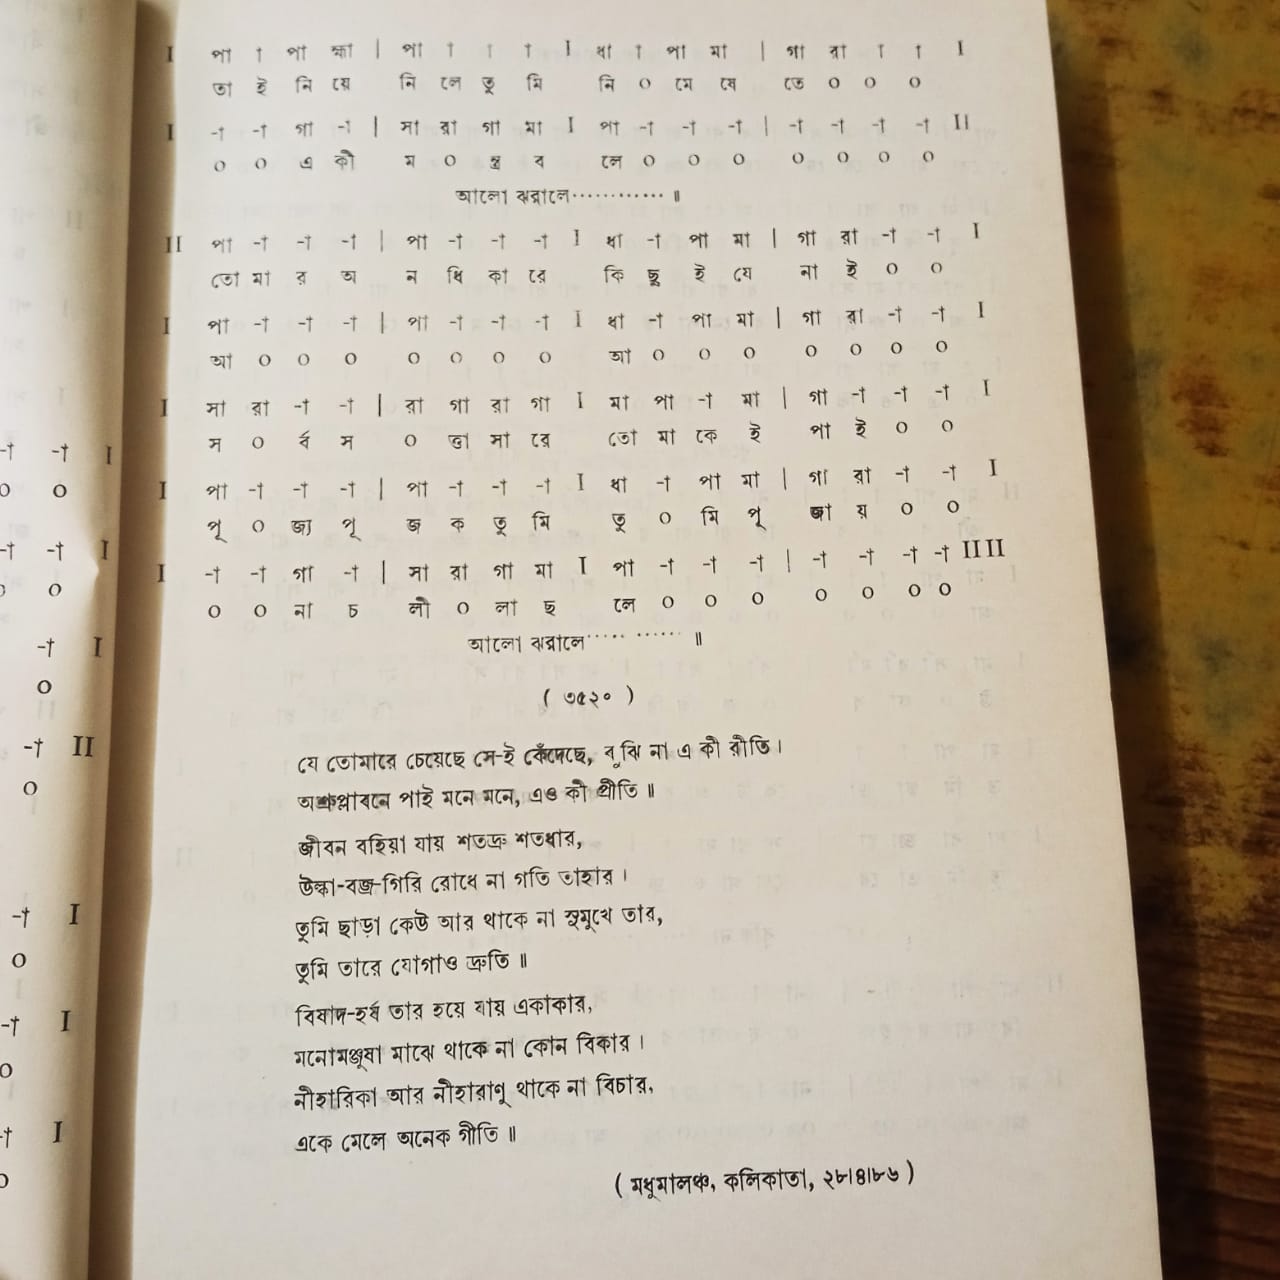 I পা া পা হ্মা | পা া া া I ধা া পা মা | গা রা া া I
তা ই নি য়ে নি লে তু মি নি ০ মে ষে তে ০ ০ ০
I -া -া গা -া | সা রা গা মা I পা -া -া -া | -া -া -া -া II
০ ০ এ কী ম ০ ন্ত্র ব লে ০ ০ ০ ০ ০ ০ ০
আলো ঝরালে············ ॥
II পা -া -া -া | পা -া -া -া I ধা -া পা মা | গা রা -া -া I
তো মা র অ ন ধি কা রে কি ছু ই যে না ই ০ ০
I পা -া -া -া | পা -া -া -া I ধা -া পা মা | গা রা -া -া I
আ ০ ০ ০ ০ ০ ০ ০ আ ০ ০ ০ ০ ০ ০ ০
I সা রা -া -া | রা গা রা গা I মা পা -া মা | গা -া -া -া I
স ০ র্ব স ০ ত্তা সা রে তো মা কে ই পা ই ০ ০
-া -া I
I পা -া -া -া | পা -া -া -া I ধা -া পা মা | গা রা -া -া I
০ ০
পূ ০ জ্য পূ জ ক তু মি তু ০ মি পূ জা য় ০ ০
-া -া I
I -া -া গা -া | সা রা গা মা I পা -া -া -া | -া -া -া -া II II
০
০ ০ না চ লী ০ লা ছ লে ০ ০ ০ ০ ০ ০ ০
আলো ঝরালে····· ······ ॥
-া I
০
-া II
০
-া I
০
-া I
০
-া I
( ৩৫২০ )
যে তোমারে চেয়েছে সে-ই কেঁদেছে, বুঝি না এ কী রীতি।
অশ্রুপ্লাবনে পাই মনে মনে, এও কী প্রীতি ॥
জীবন বহিয়া যায় শতদ্রু শতধার,
উল্কা-বজ্র-গিরি রোধে না গতি তাহার।
তুমি ছাড়া কেউ আর থাকে না সুমুখে তার,
তুমি তারে যোগাও দ্রুতি ॥
বিষাদ-হর্ষ তার হয়ে যায় একাকার,
মনোমঞ্জূষা মাঝে থাকে না কোন বিকার।
নীহারিকা আর নীহারাণু থাকে না বিচার,
একে মেলে অনেক গীতি ॥
( মধুমালঞ্চ, কলিকাতা, ২৮।৪।৮৬ )